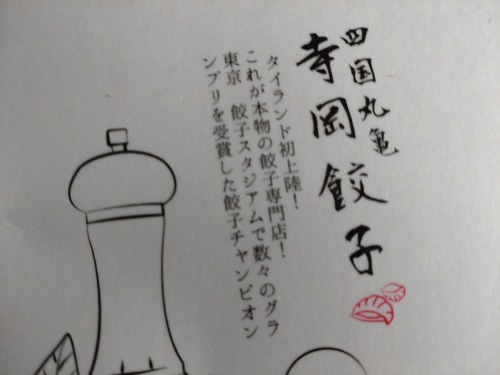 四国丸亀
寺岡餃子
タイランド初上陸！
これが本物の餃子専門店！
東京　餃子スタジアムで数々のグラ
ンプリを受賞した餃子チャンピオン